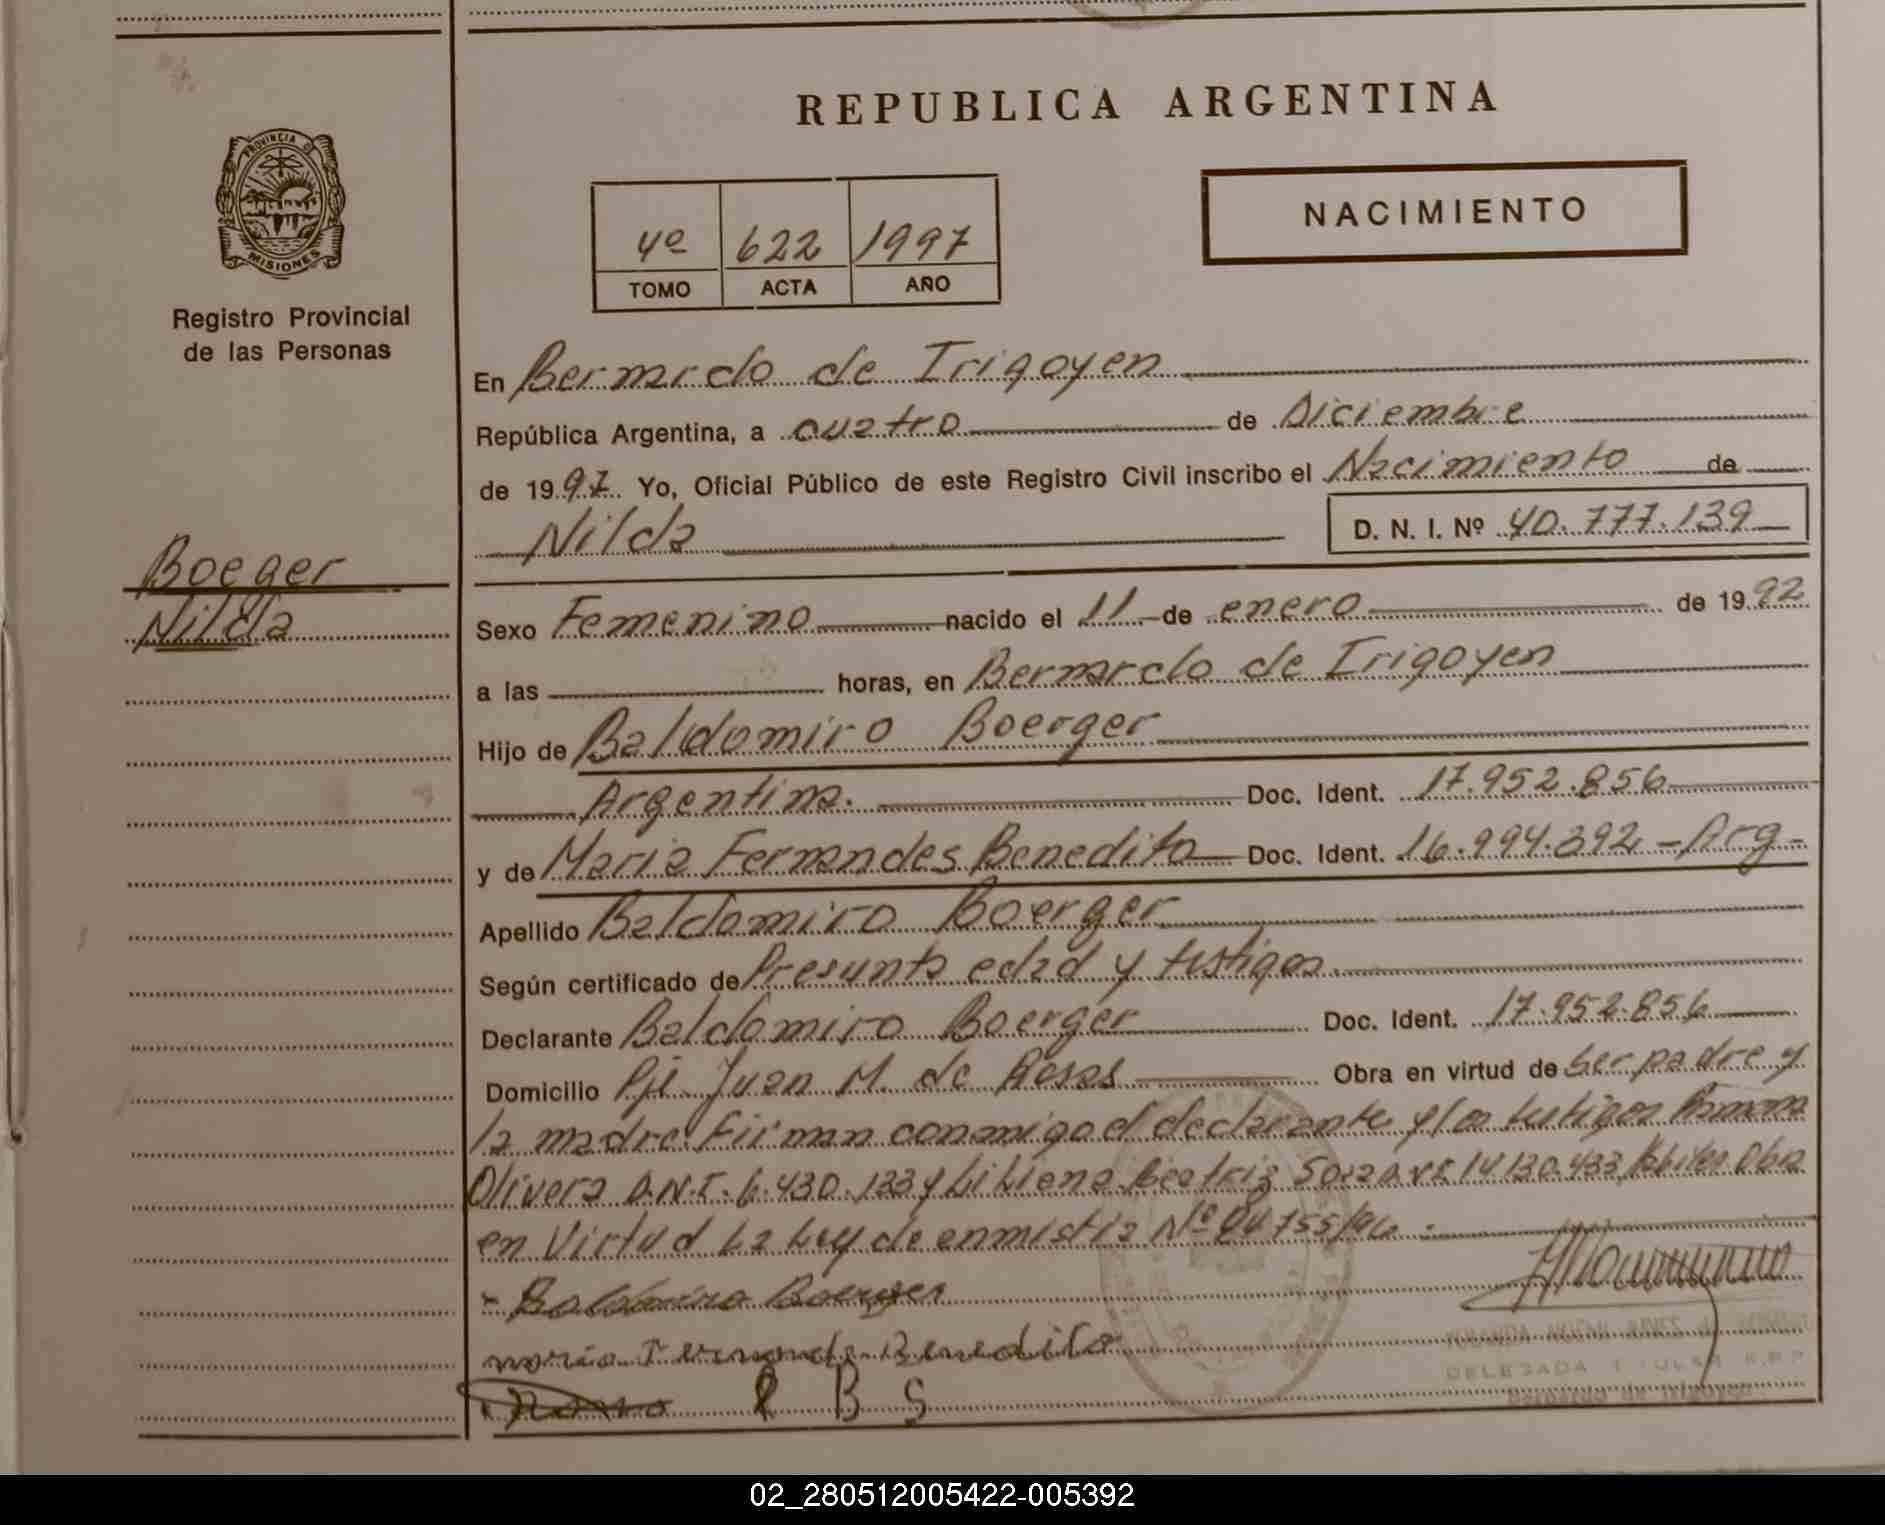 REPUBLICA ARGENTINA
NACIMIENTO
4º 622 1997
TOMO ACTA AÑO
PROVINCIA DE MISIONES
Registro Provincial
de las Personas
Boeger
Nilda
En Bernardo de Irigoyen
República Argentina, a cuatro de Diciembre
de 1997 Yo, Oficial Público de este Registro Civil inscribo el Nacimiento de
Nilda D. N. I. Nº 40.777.139
Sexo Femenino nacido el 11 de enero de 1992
a las horas, en Bernardo de Irigoyen
Hijo de Baldomiro Boerger
Argentina. Doc. Ident. 17.952.856
y de Maria Fernandes Benedito Doc. Ident. 16.994.392 - Arg -
Apellido Baldomiro Boerger
Según certificado de Presunta edad y testigos.
Declarante Baldomiro Boerger Doc. Ident. 17.952.856
Domicilio Pje Juan M. de Rosas Obra en virtud de ser padre y
la madre. Firman conmigo el declarante y los testigos Ramona
Olivera D.N.I. 6.430.133 y Liliana Beatriz 14.130.433 Obra
en Virtud La Ley de enmistia Nº 24.755/96
- Baldomiro Boerger
maria Fernande Benedito
R B S
DELEGADA TITULAR R.P.P.
Bernardo de Irigoyen
02_280512005422-005392